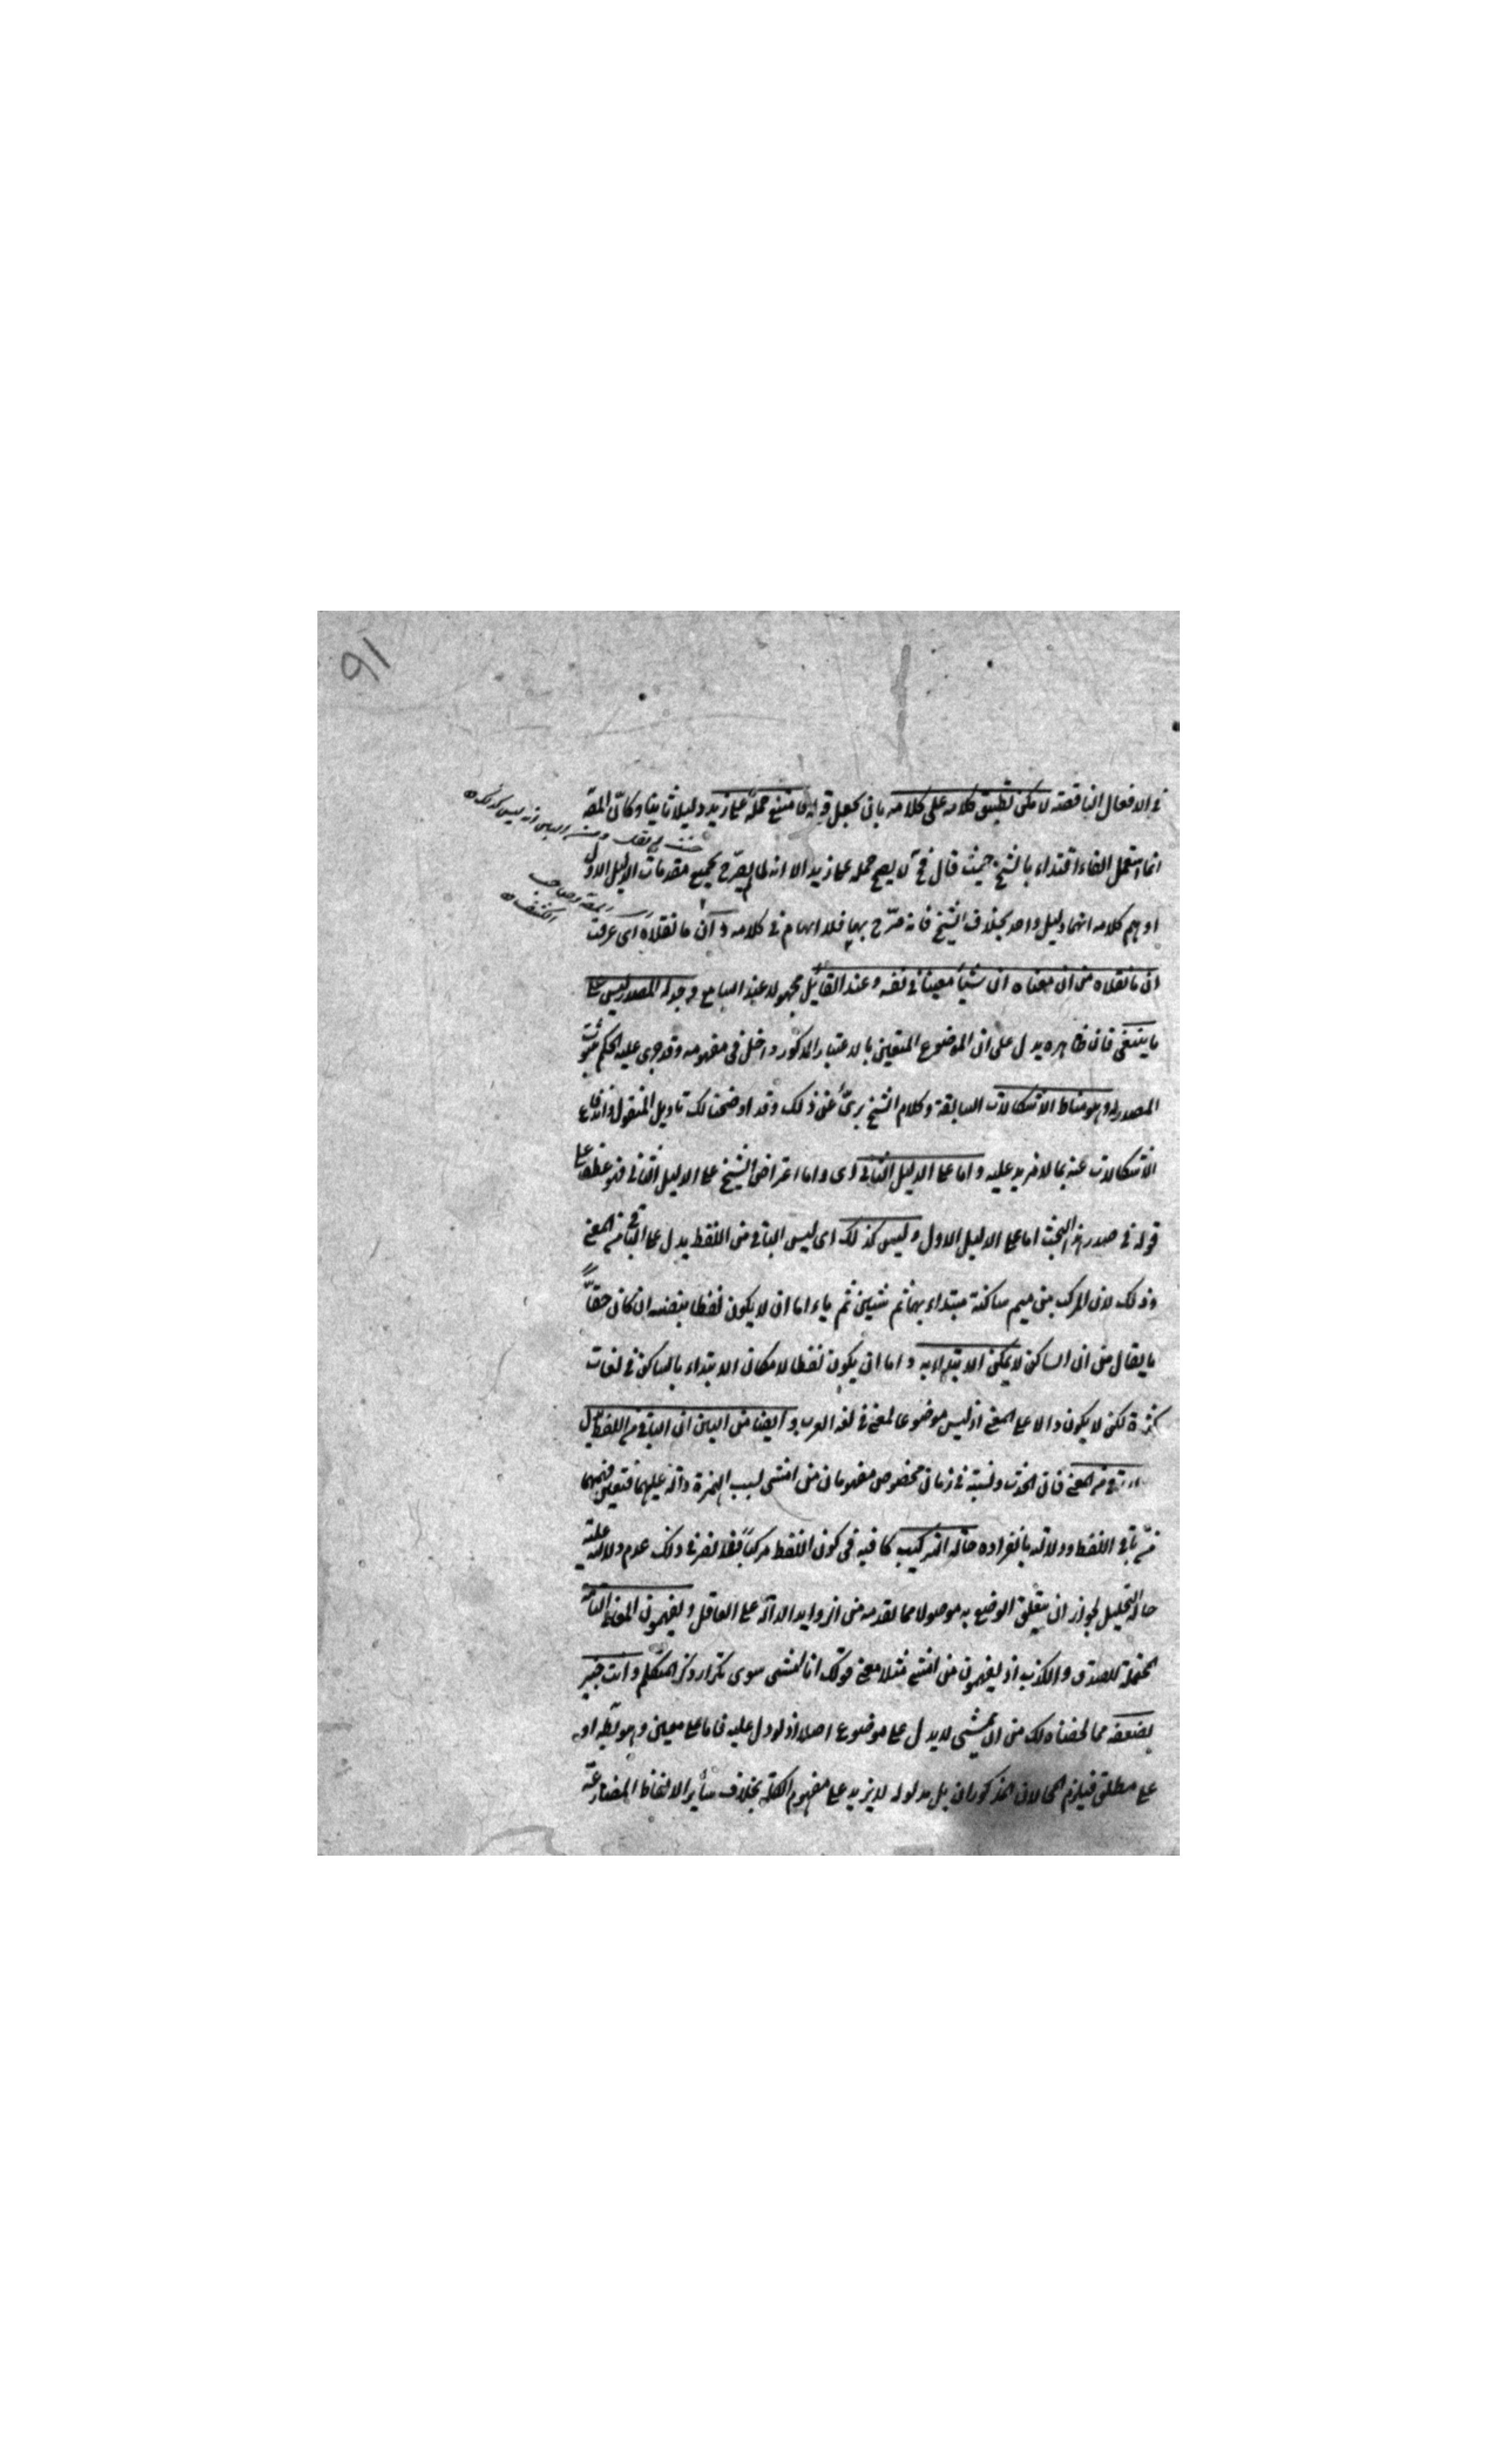 في الافعال الناقصة لا يمكن تطبيق كلامه على كلامه بان يجعل قوله فامتنع حمله على زيد دليلا ثانيا وكان المصـ
انما استعمل الفاء اقتداء بالشيخ حيث قال فح لا يصح حمله على زيد الا انه لما لم يصرح بجميع مقدمات الدليل الاول
اوهم كلامه انهما دليل واحد بخلاف الشيخ فانه صرح بها فلا ايهام في كلامه وان ما نقلاه اى عرفت
ان ما نقلاه من ان معناه ان شيئا معينا في نفسه وعند القائل مجهولا عند السامع وجد له المصدر ليس على
ما ينبغى فان ظاهره يدل على ان الموضوع المتعين بالاعتبار المذكور داخل في مفهومه وقد جرى عليه الحكم بثبوت
المصدر له وهو مناط الاشكالات السابقة وكلام الشيخ برئ عن ذلك وقد اوضحنا لك تاويل المنقول واندفاع
الاشكالات عنه بما لا مزيد عليه واما على الدليل الثانى اى واما اعتراض الشيخ على الدليل الثانى فهو عطف على
قوله في صدر هذا البحث اما على الدليل الاول وليس كذلك اى ليس الباقي من اللفظ يدل على الباقي من المعنى
وذلك لان المركب من ميم ساكنة مبتداء بها ثم شين ثم ياء اما ان لا يكون لفظا بنفسه ان كان حقا
ما يقال من ان الساكن لا يمكن الابتداء به واما ان يكون لفظا لامكان الابتداء بالساكن في لغات
كثيرة لكن لا يكون دالا على المعنى اذ ليس موضوعا لمعنى في لغة العرب وايضا من البين ان الباقي من اللفظ يدل
من المعنى فان الحدث ونسبته في زمان مخصوص مفهومان من امشى بسبب الهمزة دالة عليهما فتعين فهمهما
من باقي اللفظ ودلالته بانفراده حالة التركيب كافية في كون اللفظ مركبا فلا يضر في ذلك عدم دلالته عليه
حالة التحليل لجواز ان يتعلق الوضع به موصولا مما تقدمه من الزوايد الدالة على الفاعل ويفهمون المعانى التامة
المحتملة للصدق والكذب اذ يفهمون من امشى مثلا معنى قولك انا امشى سوى تكرار ذكر المتكلم وانت خبير
بضعفه مما لخصناه لك من ان يمشى لا يدل على موضوع اصلا اذ لو دل عليه فاما على معين وهو بط او
على مطلق فيلزم المحالان المذكوران بل مدلوله لا يزيد على مفهوم الكلمة بخلاف سائر الالفاظ المضارعة